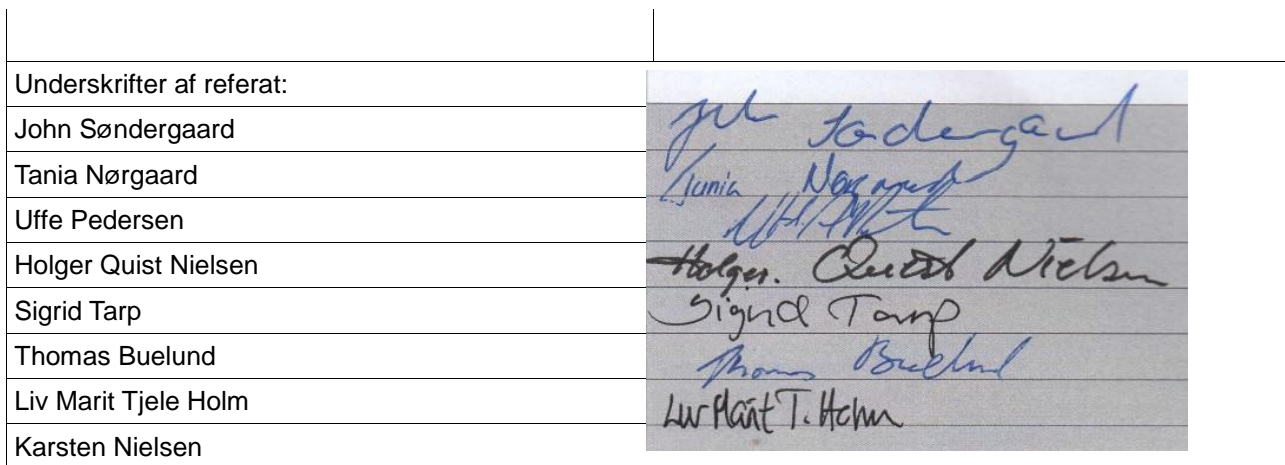 Underskrifter af referat:
John Søndergaard
Tania Nørgaard
Uffe Pedersen
Holger Quist Nielsen
Sigrid Tarp
Thomas Buelund
Liv Marit Tjele Holm
Karsten Nielsen
John Søndergaard
Tania Nørgaard
Holger Quist Nielsen
Sigrid Tarp
Thomas Buelund
Liv Marit T. Holm